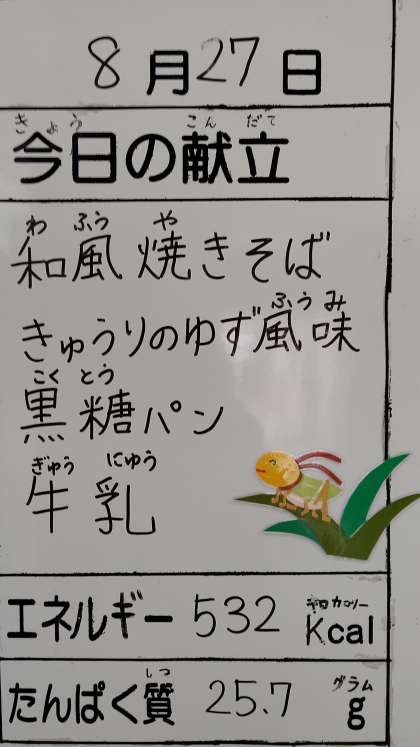 8月27日
きょう こんだて
今日の献立
わ ふう や
和風焼きそば
ふうみ
きゅうりのゆず風味
こく とう
黒糖パン
ぎゅう にゅう
牛乳
キロカロリー
エネルギー 532 Kcal
しつ グラム
たんぱく質 25.7 g